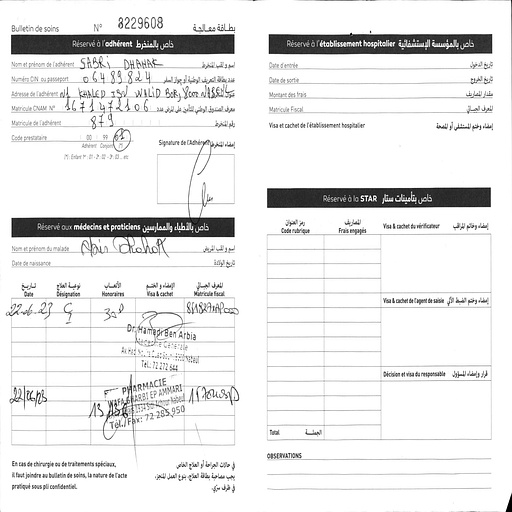 Bulletin de soins N° 8229608 بطاقة معالجة
Réservé à l'adhérent خاص بالمنخرط
Nom et prénom de l'adhérent SABRI DHAHAK اسم و لقب المنخرط
Numéro CIN ou passeport 06489824 عدد بطاقة التعريف الوطنية أو جواز السفر
Adresse de l'adhérent N1 KHALED IBN WALID BORJ 8000 NABEUL
Matricule CNAM N° 1671472106
Matricule de l'adhérent 879 رقم المنخرط
Code prestataire 00 99 01
Adhérent Conjoint (*)
(*): Enfant 1er : 01 - 2è : 02 - 3è : 03... etc
Signature de l'Adhérent إمضاء المنخرط
Réservé aux médecins et praticiens خاص بالأطباء والممارسين
Nom et prénom du malade اسم و لقب المريض
Date de naissance تاريخ الولادة
تاريخ نوعية العلاج الأتعاب الإمضاء و الختم المعرف الجبائي
Date Désignation Honoraires Visa & cachet Matricule fiscal
22.06.23
Dr. Hamedi Ben Arbia
Médecine Générale
Tél.: 72 272 644
22/06/23
PHARMACIE
WAFA GHARBI EP AMMARI
Tél./Fax: 72 285 950
En cas de chirurgie ou de traitements spéciaux,
il faut joindre au bulletin de soins, la nature de l'acte
pratiqué sous pli confidentiel.
في حالات الجراحة أو العلاج الخاص
يجب مصاحبة بطاقة العلاج، بنوع العمل المنجز،
في ظرف سرّي.
Réservé à l'établissement hospitalier خاص بالمؤسسة الإستشفائية
Date d'entrée تاريخ الدخول
Date de sortie تاريخ الخروج
Montant des frais مقدار المصاريف
Matricule Fiscal المعرف الجبائي
Visa et cachet de l'établissement hospitalier إمضاء وختم المستشفى أو المصحة
Réservé à la STAR خاص بتأمينات ستار
رمز العنوان المصاريف
Code rubrique Frais engagés
Visa & cachet du vérificateur إمضاء وخاتم المراقب
Visa & cachet de l'agent de saisie إمضاء وختم الضبط الآلي
Décision et visa du responsable قرار وإمضاء المسؤول
Total الجملة
OBSERVATIONS